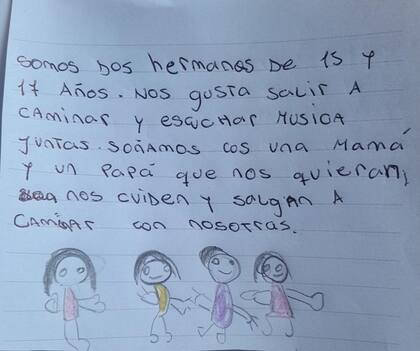 somos Dos hermanas De 15 y
17 Años. Nos gusta salir A
CAMINAR y escuchar MUSICA
JUNTAS. SOÑAMOS COS UNA MAMÁ
Y UN PAPÁ que nos quieran,
nos cuiden y salgan A
CAMINAR con nosotras.